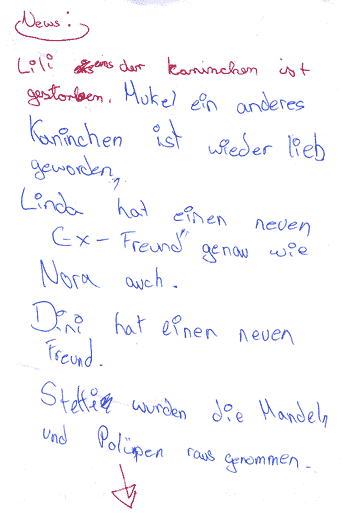 News:
Lili eins der Kaninchen ist
gestorben. Mukel ein anderes
Kaninchen ist wieder lieb
geworden,
Linda hat einen neuen
Ex-Freund" genau wie
Nora auch.
Dini hat einen neuen
Freund.
Steffi wurden die Mandeln
und Polüpen raus genommen.